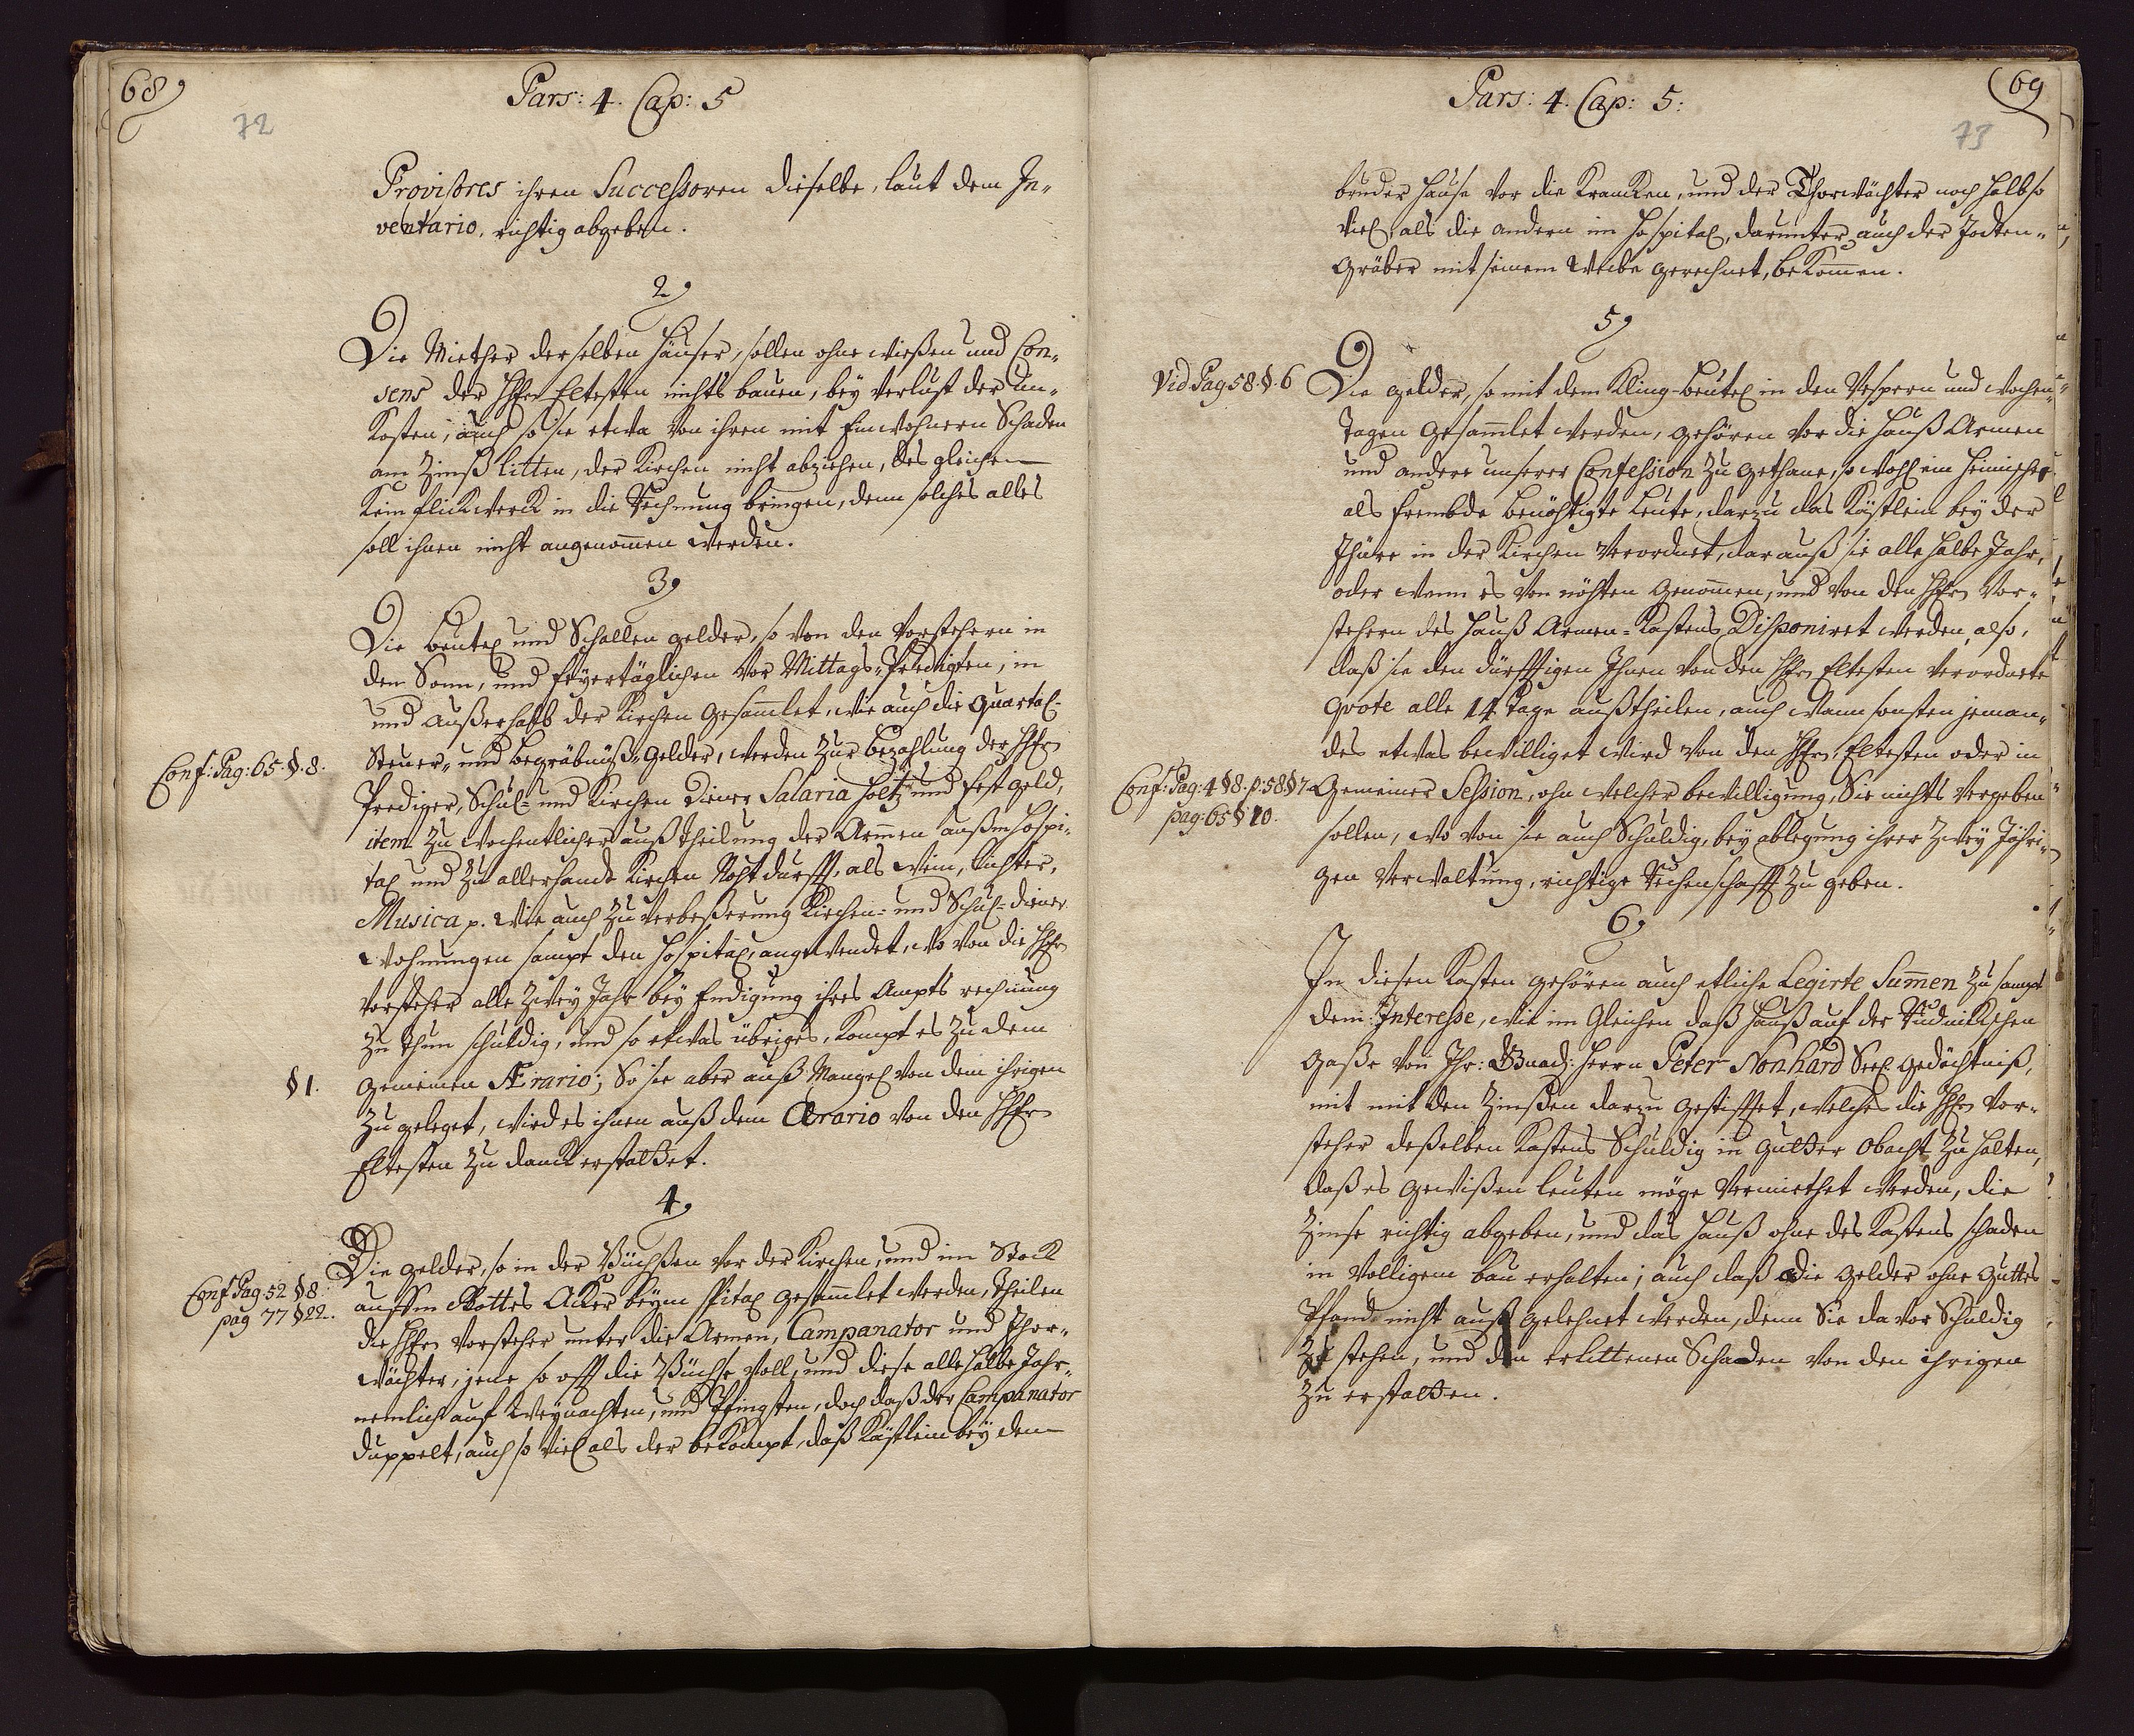 68
72
Pars: 4. Cap: 5
Provisores ihren Successoren dieselbe, laut dem In-
ventario, richtig abgeben.
2,
Die Miether derselben Häuser, sollen ohne wißen und Con-
sens der HHrn Eltesten nichts bauen, bey verlust der un-
kosten, auch so sie etwa von ihren mit Einwohnern Schaden
am Zinß litten, der Kirchen nicht abziehen, des gleichen
kein flickwerck in die Rechnung bringen, denn solches alles
soll ihnen nicht angenom̄en werden.
3,
Die Beutel und Schallen gelder, so von den Vorstehern in
den Sonn, und feyertäglichen vor Mittags-Predigten, in
und außerhalb der Kirchen gesam̄let, wie auch die Quartal-
Steuer- und begräbnüß-gelder, werden zur bezahlung der HHrn
Conf: Pag: 65. §. 8.
Prediger, Schul- und Kirchen Diener Salaria Holtz und fest geld,
item zu wochentlicher auß theilung der Armen außm Hospi-
tal und zu allerhand Kirchen Nohtdurfft, als Wein, Lichter,
Musica p. wie auch zu verbeßerung Kirchen- und Schul-diener
Wohnungen sampt den Hospital, angewendet, wo von die HHrn
Vorsteher alle Zwey Jahr bey Endigung ihres Ampts rechnung
zu thun schuldig, und so etwas übriges, kompt es zu dem
§ 1.
gemeinen Ærario; So sie aber auß Mangel von dem ihrigen
zu geleget, wird es ihnen auß dem Ærario von den HHrn
Eltesten zu danck erstattet.
4,
Die gelder, so in der Büchßen vor der Kirchen, und im Stock
Conf Pag. 52 § 8.
pag 77 § 22.
auffm Gottes Acker beym Spital gesam̄let werden, theilen
die HHrn Vorsteher unter die Armen, Campanator und Thor-
wächter, jene so offt die Büchse voll, und diese alle halbe Jahr,
nemlich auf Weynachten, und Pfingsten, doch daß der Campanator
duppelt, auch so viel als der bekompt, daß Kästlein bey dem
69
73
Pars: 4. Cap: 5:
bruder Hause vor die Krancken, und der Thorwächter noch halb so
viel, als die andern im Hospital, darunter auch der Todten-
gräber mit seinem Weibe gerechnet, bekom̄en.
5,
Vid Pag 58. §. 6
Die gelder, so mit dem Kling-beutel in den Vespern und wochen-
tagen gesam̄let werden, gehören vor die Hauß Armen
und andere unserer Confession zu gethane, so wohl ein heimische
als frembde benöhtigte Leute, darzu das Kästlein bey der
Thüre in der Kirchen verordnet, darauß sie alle halbe Jahr,
oder wenn es von nöhten genom̄en, und von den HHrn Vor-
stehern des Hauß Armen-Kastens Disponiret werden, also,
daß sie den dürfftigen Ihnen von den HHrn Eltesten verordnete
Qvote alle 14 tage außtheilen, auch wann sonsten jeman-
des etwas bewilliget wird von den HHrn Eltesten oder in
Conf: Pag: 4 § 8. p: 58 § 7.
pag: 65 § 10.
Gemeiner Session, ohn welcher bewilligung, Sie nichts vergeben
sollen, wo von sie auch Schuldig, bey ablegung ihrer Zwey Jähri-
gen Verwaltung, richtige Rechenschafft zu geben.
6,
In diesen Kasten gehören auch etliche Legirte Sum̄en zu sampt
dem Interesse, wie im Gleichen daß Hauß auf der Rudnikschen
gaße von Ihr: Gnad: Herrn Peter Nonhard Seel. gedächtniß,
mit mit den Zinßen darzu gestifftet, welches die HHrn Vor-
steher deßelben Kastens Schuldig in gutter obacht zu halten,
daß es gewißen leuten möge vermiethet werden, die
Zinse richtig abgeben, und das Hauß ohne des Kastens schaden
in völligem bau erhalten; auch daß die gelder ohne guttes
Pfand nicht auß gelehnet werden, denn Sie da vor Schuldig
zu stehen, und den erlittenen Schaden von den ihrigen
zu erstatten.